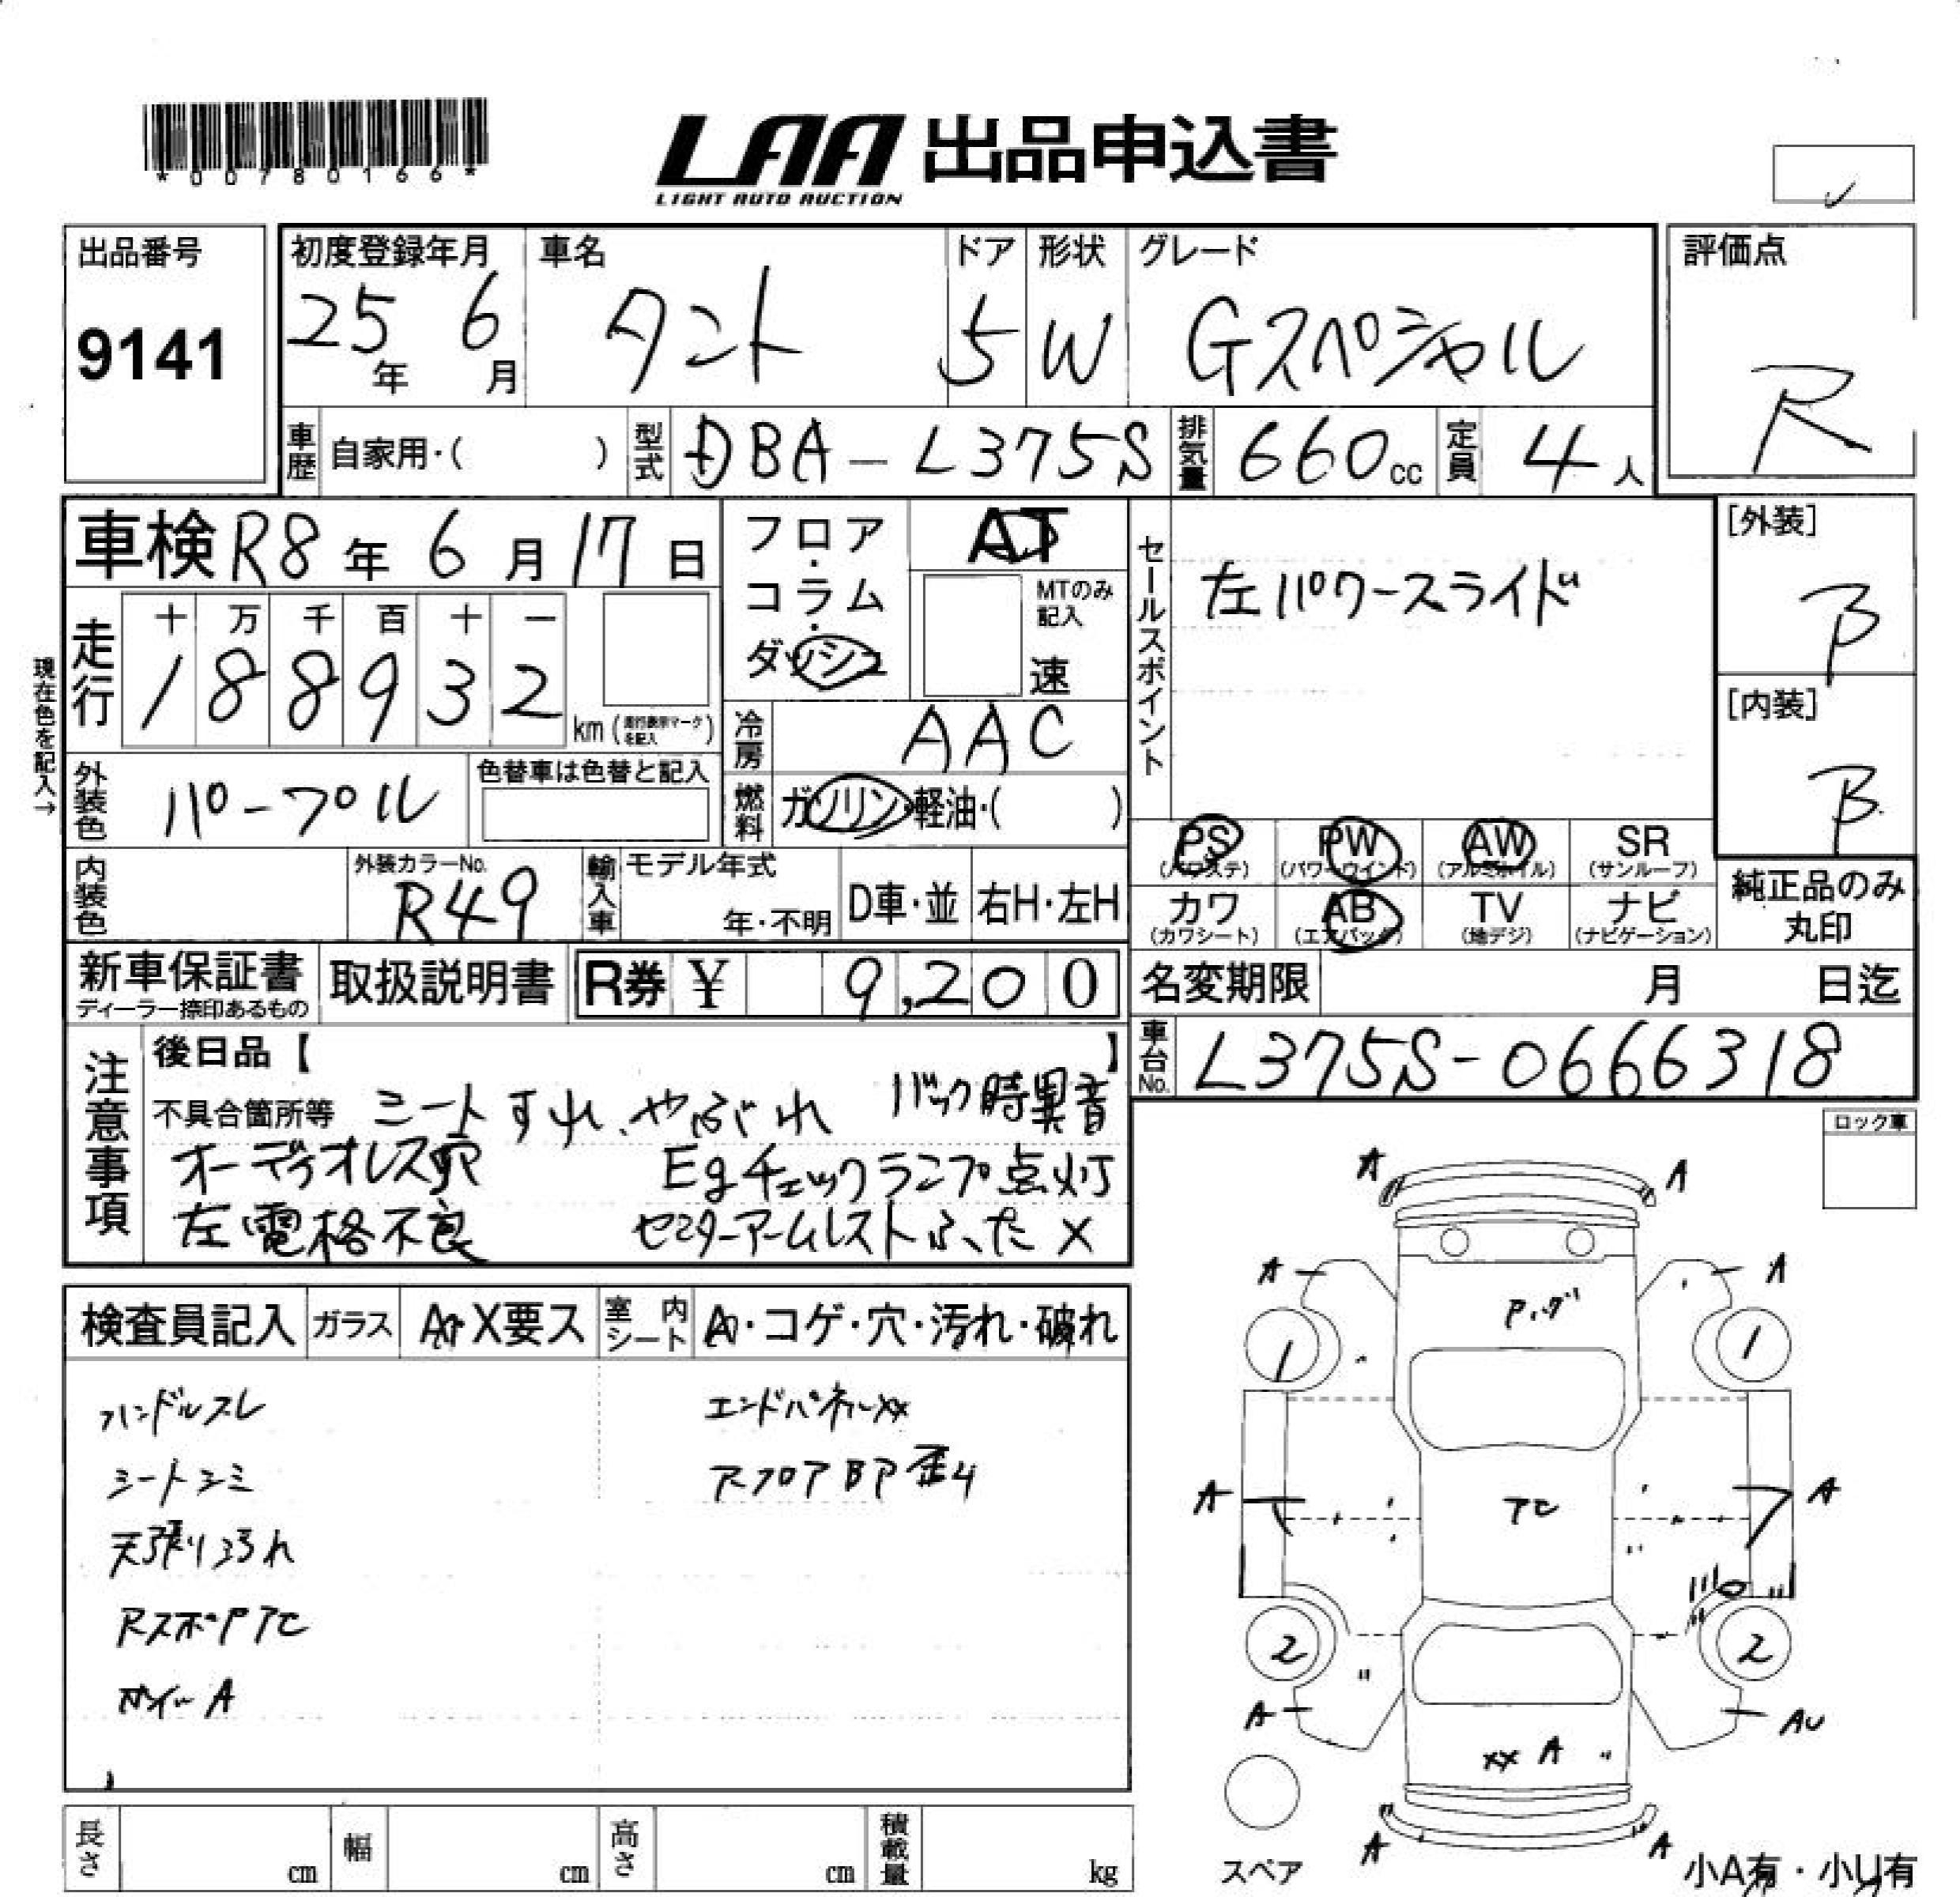 *00780166*
LAA 出品申込書
LIGHT AUTO AUCTION
出品番号
9141
初度登録年月
25年 6月
車名
タント
ドア
5
形状
W
グレード
Gスペシャル
評価点
R
車歴 自家用・( )
型式 DBA-L375S
排気量 660cc
定員 4人
車検 R8年 6月 17日
フロア・コラム・ダッシュ
AT
MTのみ記入
速
セールスポイント
左パワースライド
[外装]
B
[内装]
B
現在色を記入→
走行
十 万 千 百 十 一
1 8 8 9 3 2
km(走行表示マークを記入)
冷房 AAC
外装色 パープル
色替車は色替と記入
燃料 ガソリン・軽油・( )
内装色
外装カラーNo.
R49
輸入車
モデル年式
年・不明
D車・並
右H・左H
PS (パワステ)
PW (パワーウインド)
AW (アルミホイル)
SR (サンルーフ)
カワ (カワシート)
AB (エアバッグ)
TV (地デジ)
ナビ (ナビゲーション)
純正品のみ丸印
新車保証書
ディーラー捺印あるもの
取扱説明書
R券 ¥ 9,200
名変期限 月 日迄
車台No. L375S-0666318
注意事項
後日品【 】
不具合箇所等 シートすれ、やぶれ バック時異音
オーディオレス
Egチェックランプ点灯
左電格不良
センターアームレストふた×
ロック車
検査員記入
ガラス
A・X要ス
室内シート
A・コゲ・穴・汚れ・破れ
ハンドルスレ
エンドパネルXX
シートシミ
RフロアBP歪4
天張りよごれ
RスポPTC
ホイルA
A A
A A
P.グ
1 1
A A
TC
2 2
A AU
XX A
A A
スペア
小A有・小U有
長さ cm
幅 cm
高さ cm
積載量 kg